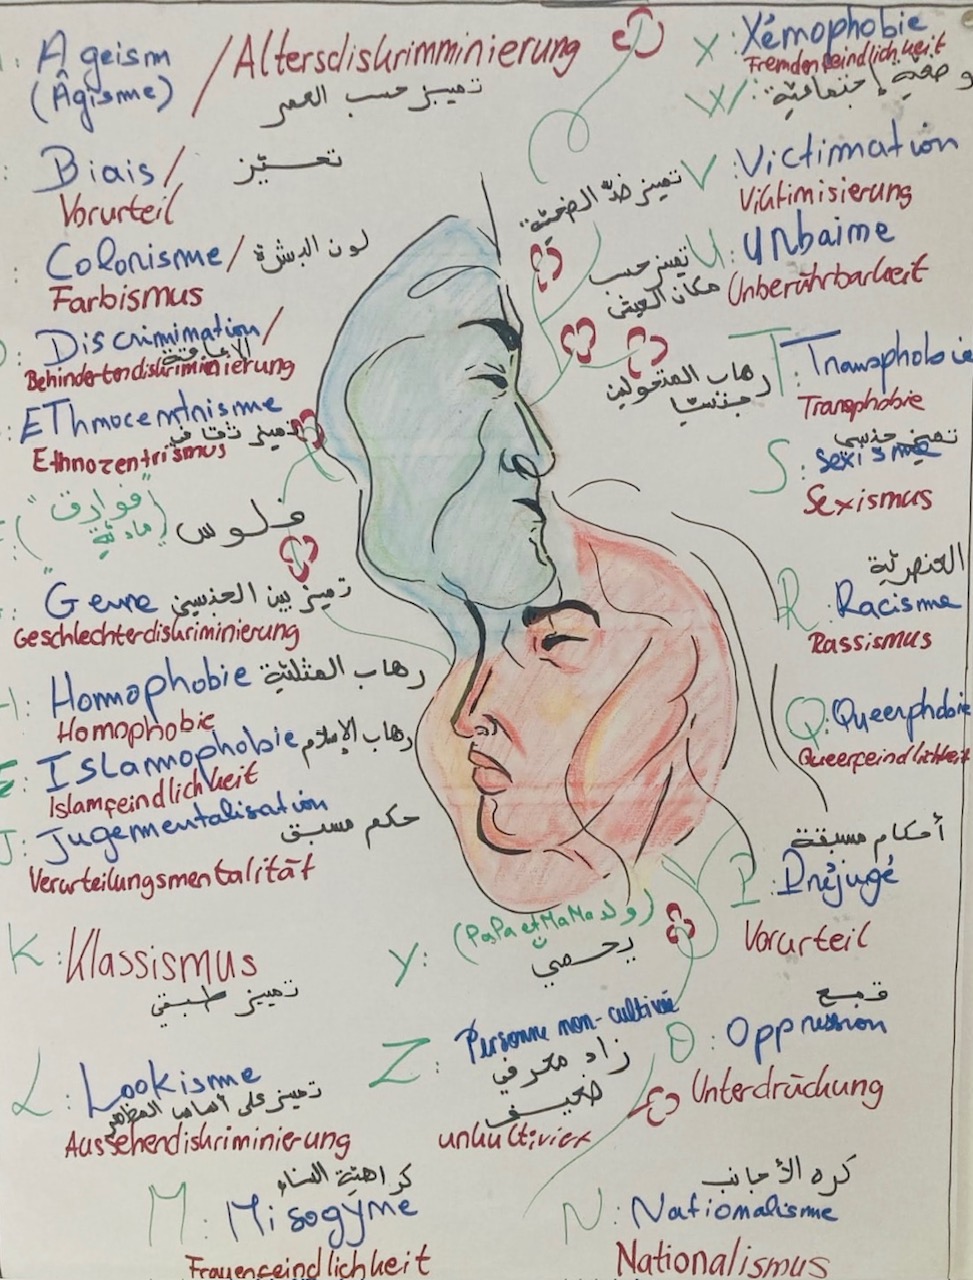 Ageism / Altersdiskrimminierung
(Âgisme)
تمييز حسب العمر
: Biais / تحيّز
Vorurteil
: Colorisme / لون البشرة
Farbismus
D: Discrimination /
الإعاقة
Behindertendiskriminierung
: EThnocentrisme
تمييز ثقافي
Ethnozentrismus
فلوس ("فوارق مادية")
: Genre تمييز بين الجنسين
Geschlechterdiskriminierung
H: Homophobie رهاب المثلية
Homophobie
I: Islamophobie رهاب الإسلام
Islamfeindlichkeit
J: Jugementalisation حكم مسبق
Verurteilungsmentalität
K: Klassismus
تمييز طبقي
L: Lookisme
تمييز على أساس المظاهر
Aussehendiskriminierung
M: كراهية النساء
Misogyne
Frauenfeindlichkeit
N: كره الأجانب
Nationalisme
Nationalismus
O: قمع
Oppression
Unterdrückung
P: أحكام مسبقة
Préjugé
Vorurteil
Q: Queerphobie
Queerfeindlichkeit
R: العنصرية
Racisme
Rassismus
S: تمييز جنسي
Sexisme
Sexismus
T: Transphobie
رهاب المتحولين جنسيا
Transphobie
U: Urbaine
تمييز حسب مكان العيش
Unberührbarkeit
V: Victimation
تمييز ضدّ الضحيّة
Viktimisierung
W: وضعية إجتماعية
X: Xénophobie
Fremdenfeindlichkeit
Y: (PaPa et MaMa ولد)
يحصي
Z: Personne non-cultivée
زاد معرفي
ضعيف
unkultivier